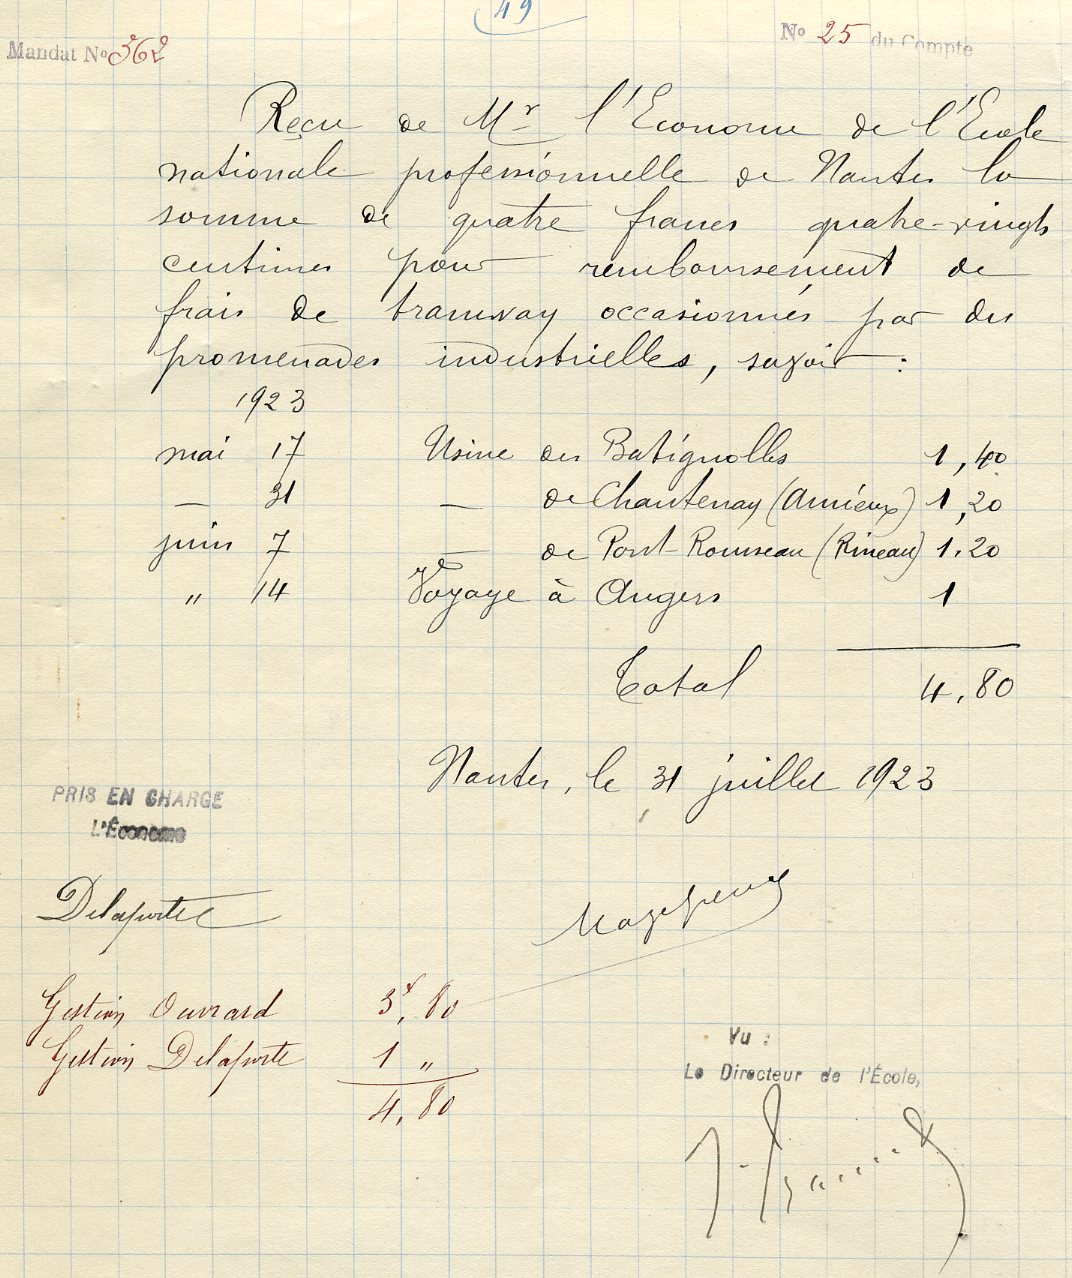 49
Mandat No 362
No 25 du Compte
Reçu de Mr l'Econome de l'Ecole
nationale professionnelle de Nantes la
somme de quatre francs quatre-vingts
centimes pour remboursement de
frais de tramway occasionnés par des
promenades industrielles, savoir :
1923
mai 17 Usine des Batignolles 1,40
— 31 — de Chantenay (Amieux) 1,20
juin 7 — de Pont-Rousseau (Rineau) 1.20
" 14 Voyage à Angers 1
Total 4,80
Nantes, le 31 juillet 1923
PRIS EN CHARGE
L'Économe
Delaporte
Gestion Ouvrard 3f,80
Gestion Delaporte 1 "
4,80
Vu :
Le Directeur de l'École,